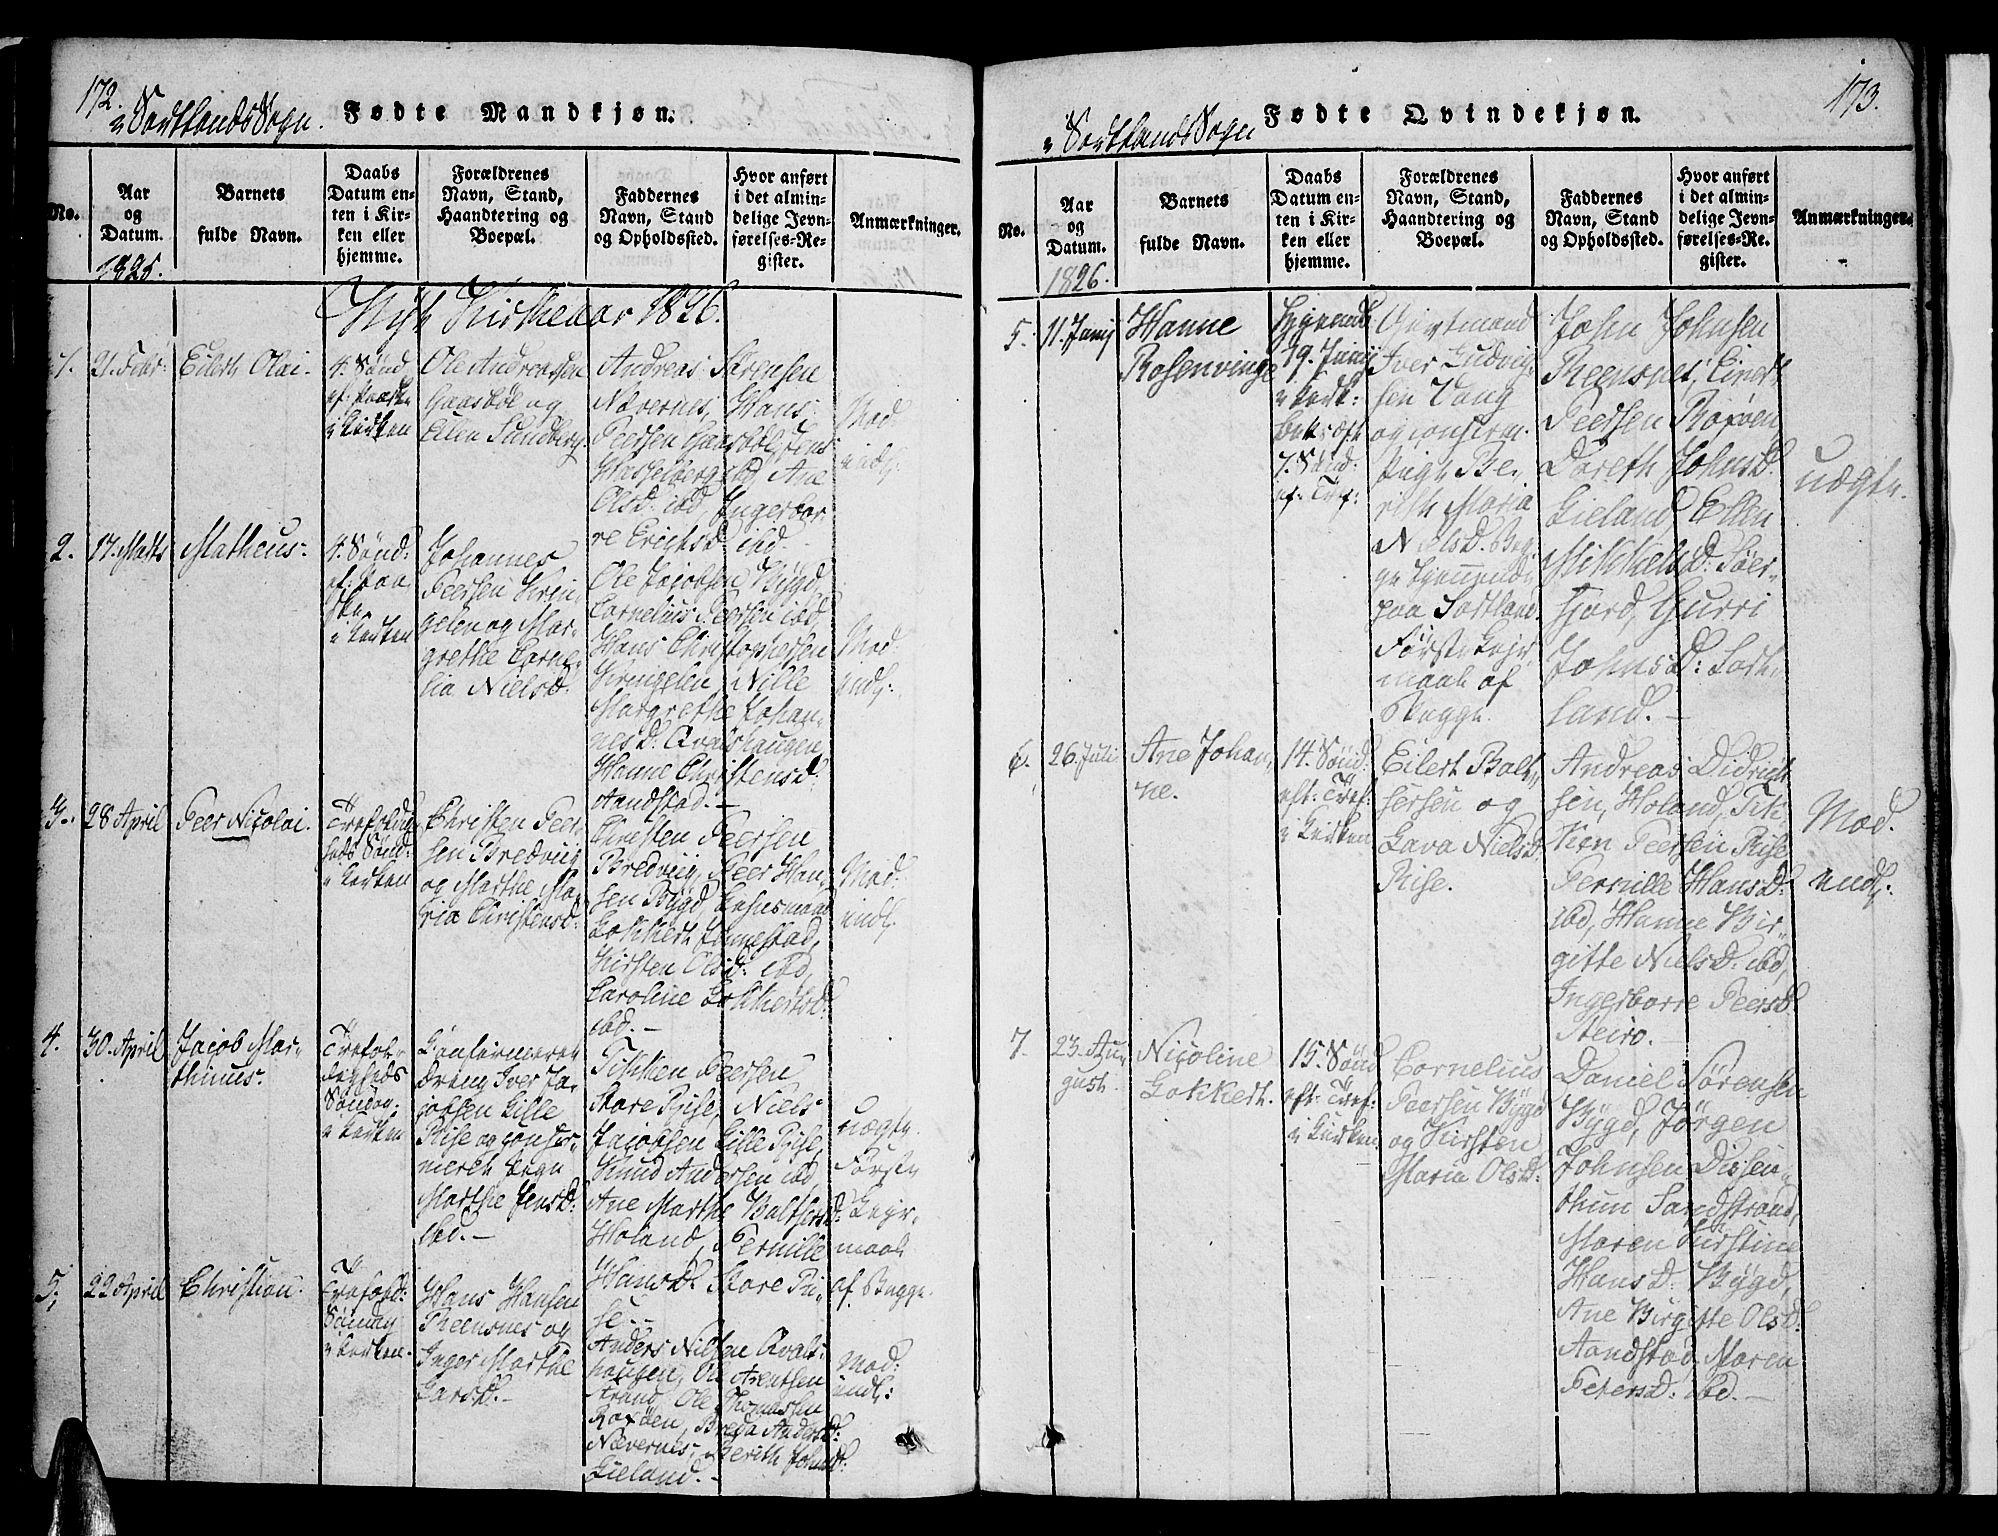 172.
i Sortlands Sogn.
Fødte Mandkjøn.
No.
Aar
og
Datum.
1825.
Barnets
fulde Navn.
Daabs
Datum en-
ten i Kir-
ken eller
hjemme.
Forældrenes
Navn, Stand,
Haandtering og
Boepæl.
Faddernes
Navn, Stand
og Opholdssted.
Hvor anført
i det almin-
delige Jevn-
førelses-Re-
gister.
Anmærkninger.
Nyt Kirkeaar 1826.
1.
21. Febr:
Eilert Olai.
4. Sønd
ef: Paaske
i Kirken
Ole Andreassen
Gaasbøl og
Ellen Sundberg.
Andreas Sørensen
Nævernes, Hans
Peersen Gaasbøl, Jens
Hasselberg ibd, Ane
Olsd: ibd, Ingebor-
re Erichsd: ibd.
Mod:
indl:
2.
17. Marts
Matheus.
4. Sønd:
ef: Paa-
ske
i Kirken
Johannes
Peersen Krin-
gelen og Mar-
grethe Corne-
lia Nielsd.
Ole Jacobsen Bygd,
Cornelius Peersen ibd,
Hans Christophersen
Kringelen, Nille
Margrethe Johan-
nesd: Qvalshaugen,
Hanne Christensd:
Aandstad.-
Mod:
indl:
3.
28 April
Peer Nicolai.
Trefoldig-
heds Sønd:
i Kirken
Christen Peer-
sen Bredviig
og Marthe Ma-
ria Christensd:
Christen Peersen
Bredviig, Peer Han-
sen Bygd, Lehnsmand
Lokkert Jennestad,
Kirsten Olsd: ibd,
Caroline Lokkertsd:
ibd.-
Mod:
indl.
4.
30. April
Jacob Mar-
thinus.
Trefol-
digheds
Søndag
i Kirken
Confirmeret
Dreng Iver Ja-
cobsen Lille
Riise og confir-
meret Pige
Marthe Jensd:
ibd.-
Tikken Peersen
Store Riise, Niels
Jacobsen Lille Riise,
Knud Andersen ibd,
Ane Marthe Balthersd:
Holand, Pernille
Hansd: Store Ri-
se.-
uægte.
Første
Lejr-
maal
af Begge.
5.
22 April
Christian.
Trefold:
Søndag
i Kirken.
Hans Hansen
Reensnes og
Inger Marthe
Larsd.-
Anders Nielsen Qvals-
haugen, Ole Arentsen
Strand, Ole Thomassen
Roxøen, Breda Andersd:
Nævernes, Berith Johnsd:
Lieland.-
Mod:
indl:
173.
i Sortlands Sogn
Fødte Qvindekjøn.
No.
Aar
og
Datum.
1826.
Barnets
fulde Navn.
Daabs
Datum en-
ten i Kir-
ken eller
hjemme.
Forældrenes
Navn, Stand,
Haandtering og
Boepæl.
Faddernes
Navn, Stand
og Opholdssted.
Hvor anført
i det almin-
delige Jevn-
førelses-Re-
gister.
Anmærkninger.
5.
11. Junij
Hanne
Rosenvinge
19. Junij
7. Sønd:
ef: Tref:
Iver Ludvig-
sen Vang
og confirm:
Pige Be-
rith Maria
Nielsd.
paa Sortland.
Første Lejr-
maal af
Begge.
John Johnsen
Reensnes, Einert
Peersen Roxøen,
Doreth Johnsd.
Lieland, Ellen
Mikkelsd: Sører-
fjord, Gurri
Johnsd: Sort-
land.-
uægte.
6.
26. Juli.
Ane Johan-
ne.
14. Sønd:
eft: Tref:
i Kirken
Eilert Balt-
sersen og
Lava Nielsd
Rise.
Andreas Didrich-
sen, Holand, Tik-
ken Peersen Rise,
Pernille Hansd:
ibd, Hanne Bir-
gitte Nielsd: ibd,
Ingeborre Peersd:
Steiro.-
Mod.
indl:
7.
23. Au-
gust.
Nicoline
Lokkert.
15. Sønd
eft: Tref:
i Kirken
Cornelius
Peersen Bygd
og Kirsten
Maria Olsd:
Daniel Sørensen
Bygd, Jørgen
Johnsen Dissen-
thun Sandstrand,
Maren Kirstine
Hansd: Bygd,
Ane Birgitte Olsd:
Aandstad, Maren
Petersd: ibd.-